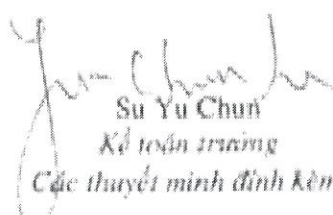 Su Yu Chun
Kế toán trưởng
Các thuyết minh đính kèm